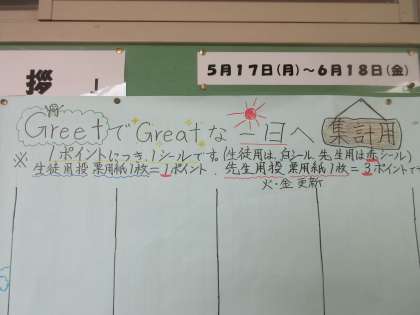 5月17日(月)～6月18日(金)
挨
GreetでGreatな一日へ 集計用
※ 1ポイントにつき、1シールです。(生徒用は、白シール、先生用は赤シール)
生徒用投票用紙1枚=1ポイント、先生用投票用紙1枚=3ポイントで
火・金 更新